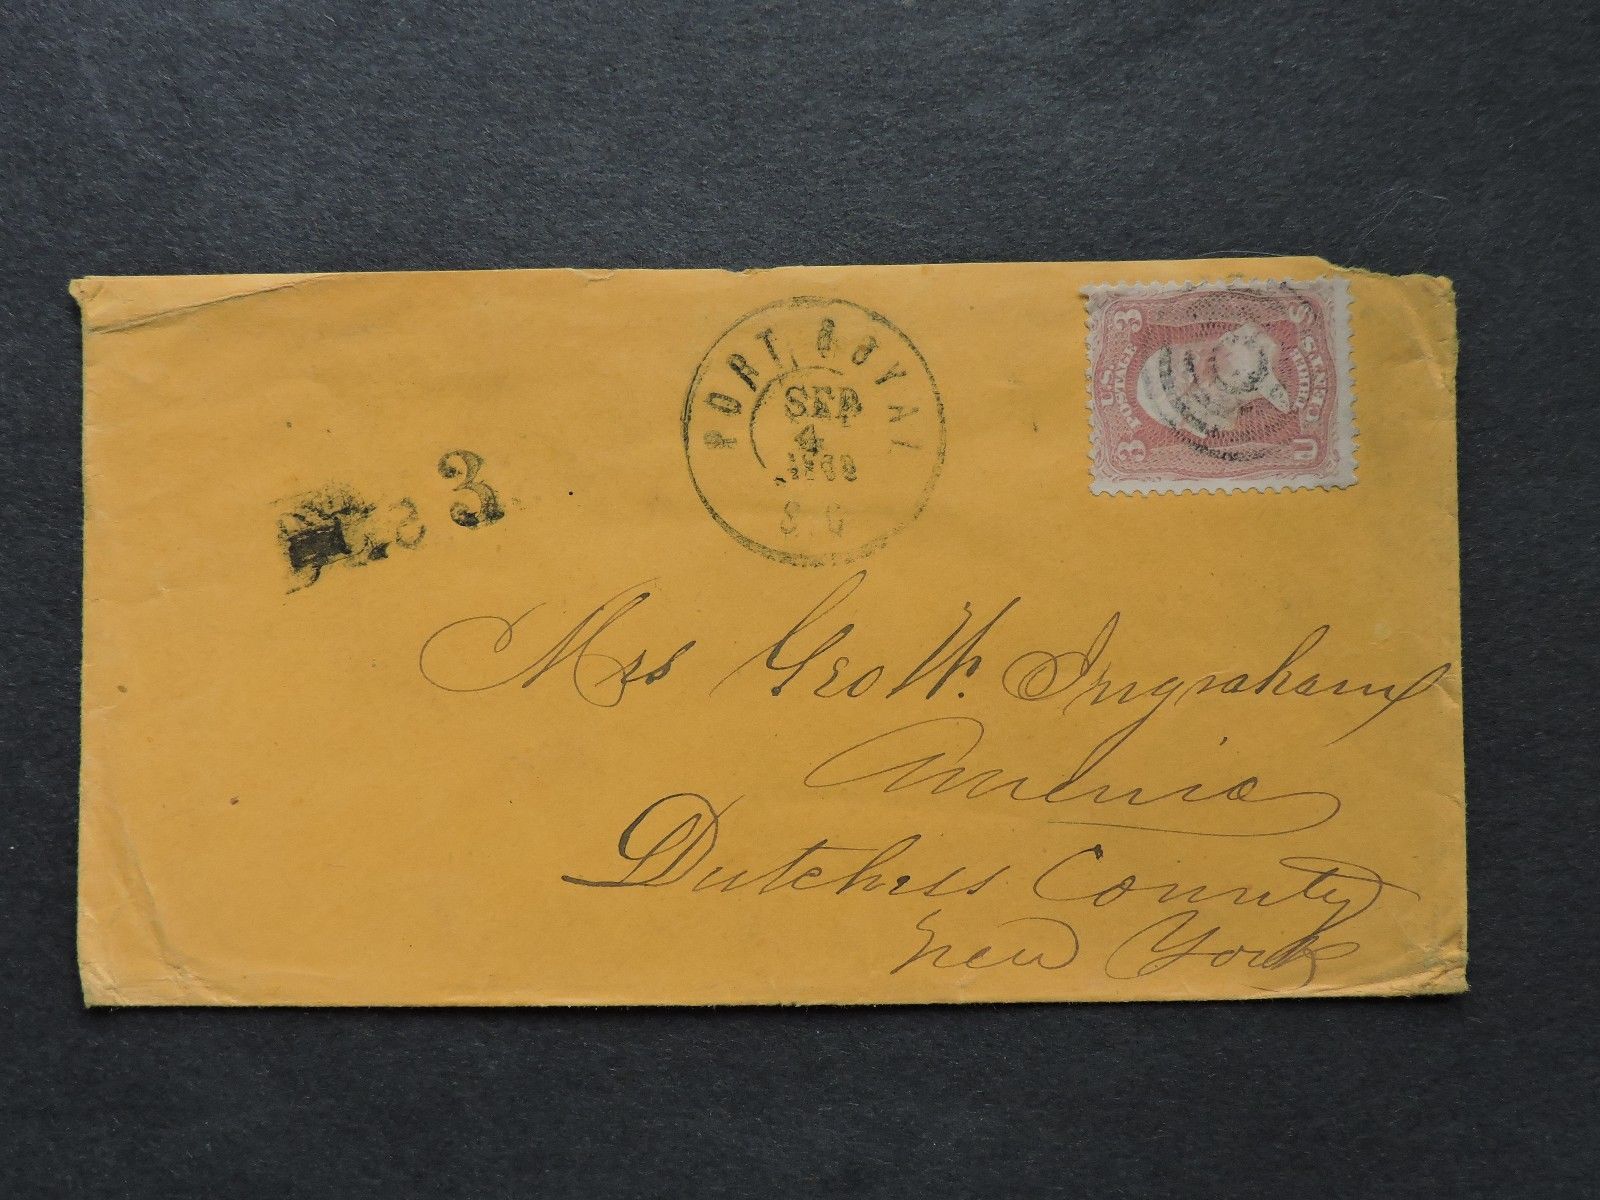 PORT ROYAL
SEP
4
S.C
3
3 U.S. POSTAGE 3
U S
Due 3
Mrs Geo W. Ingraham
Amenia
Dutchess County
New York